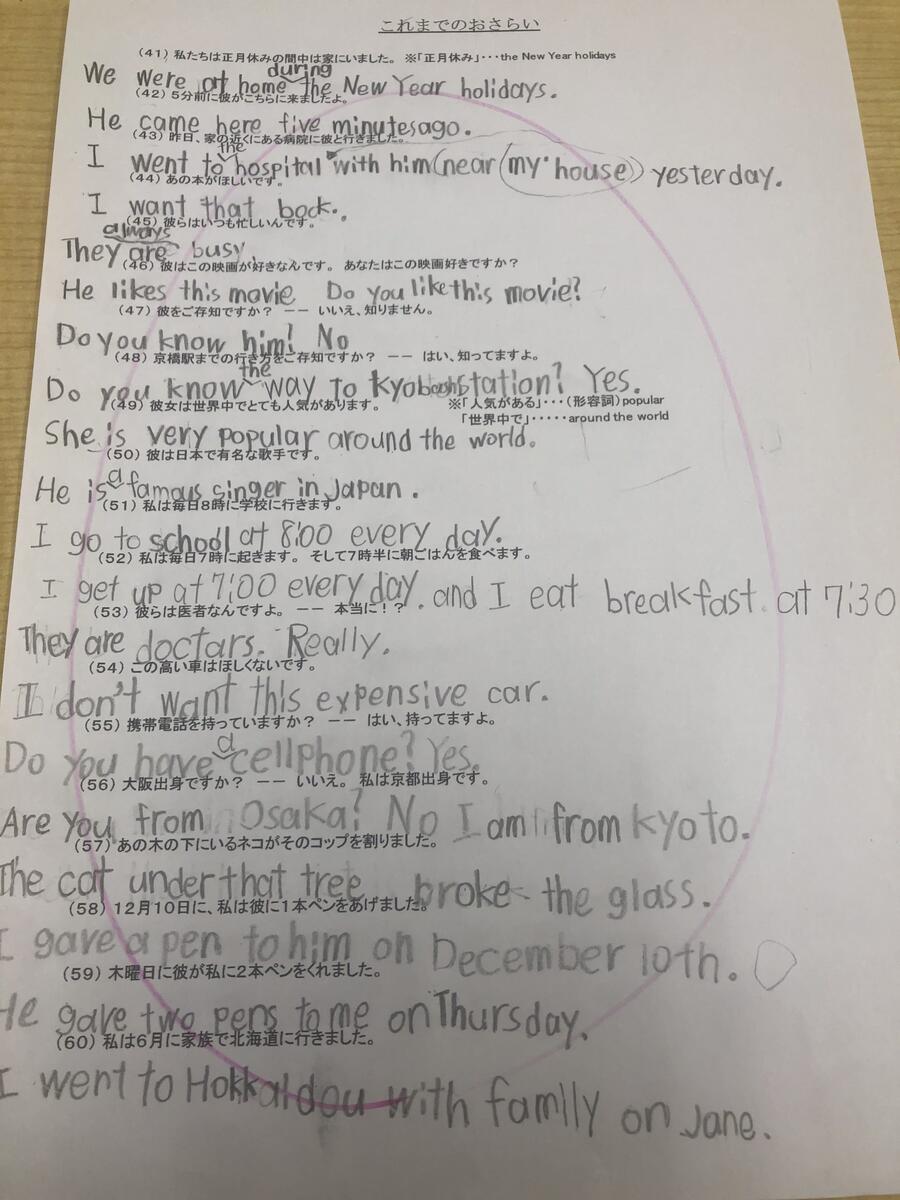 これまでのおさらい
(41) 私たちは正月休みの間中は家にいました。 ※「正月休み」・・・the New Year holidays
during
We were at home the New Year holidays.
(42) 5分前に彼がこちらに来ましたよ。
He came here five minutes ago.
(43) 昨日、家の近くにある病院に彼と行きました。
the
I went to hospital with him (near (my house)) yesterday.
(44) あの本がほしいです。
I want that book.
(45) 彼らはいつも忙しいんです。
always
They are busy.
(46) 彼はこの映画が好きなんです。 あなたはこの映画好きですか?
He likes this movie Do you like this movie?
(47) 彼をご存知ですか? ―― いいえ、知りません。
Do you know him? No
(48) 京橋駅までの行き方をご存知ですか? ―― はい、知ってますよ。
the
Do you know way to station? Yes.
(49) 彼女は世界中でとても人気があります。 ※「人気がある」・・・(形容詞) popular
「世界中で」・・・・・around the world
She is very popular around the world.
(50) 彼は日本で有名な歌手です。
a
He is famous singer in Japan.
(51) 私は毎日8時に学校に行きます。
I go to school at 8:00 every day.
(52) 私は毎日7時に起きます。 そして7時半に朝ごはんを食べます。
I get up at 7:00 every day. and I eat breakfast. at 7:30
(53) 彼らは医者なんですよ。 ―― 本当に!?
They are doctars. Really.
(54) この高い車はほしくないです。
I don't want this expensive car.
(55) 携帯電話を持っていますか? ―― はい、持ってますよ。
a
Do you have cellphone? Yes.
(56) 大阪出身ですか? ―― いいえ。 私は京都出身です。
Are you from Osaka? No I am from kyoto.
(57) あの木の下にいるネコがそのコップを割りました。
The cat under that tree broke the glass.
(58) 12月10日に、私は彼に1本ペンをあげました。
I gave a pen to him on December 10th.
(59) 木曜日に彼が私に2本ペンをくれました。
He gave two pens to me on Thursday.
(60) 私は6月に家族で北海道に行きました。
I went to Hokkaidou with family on Jane.